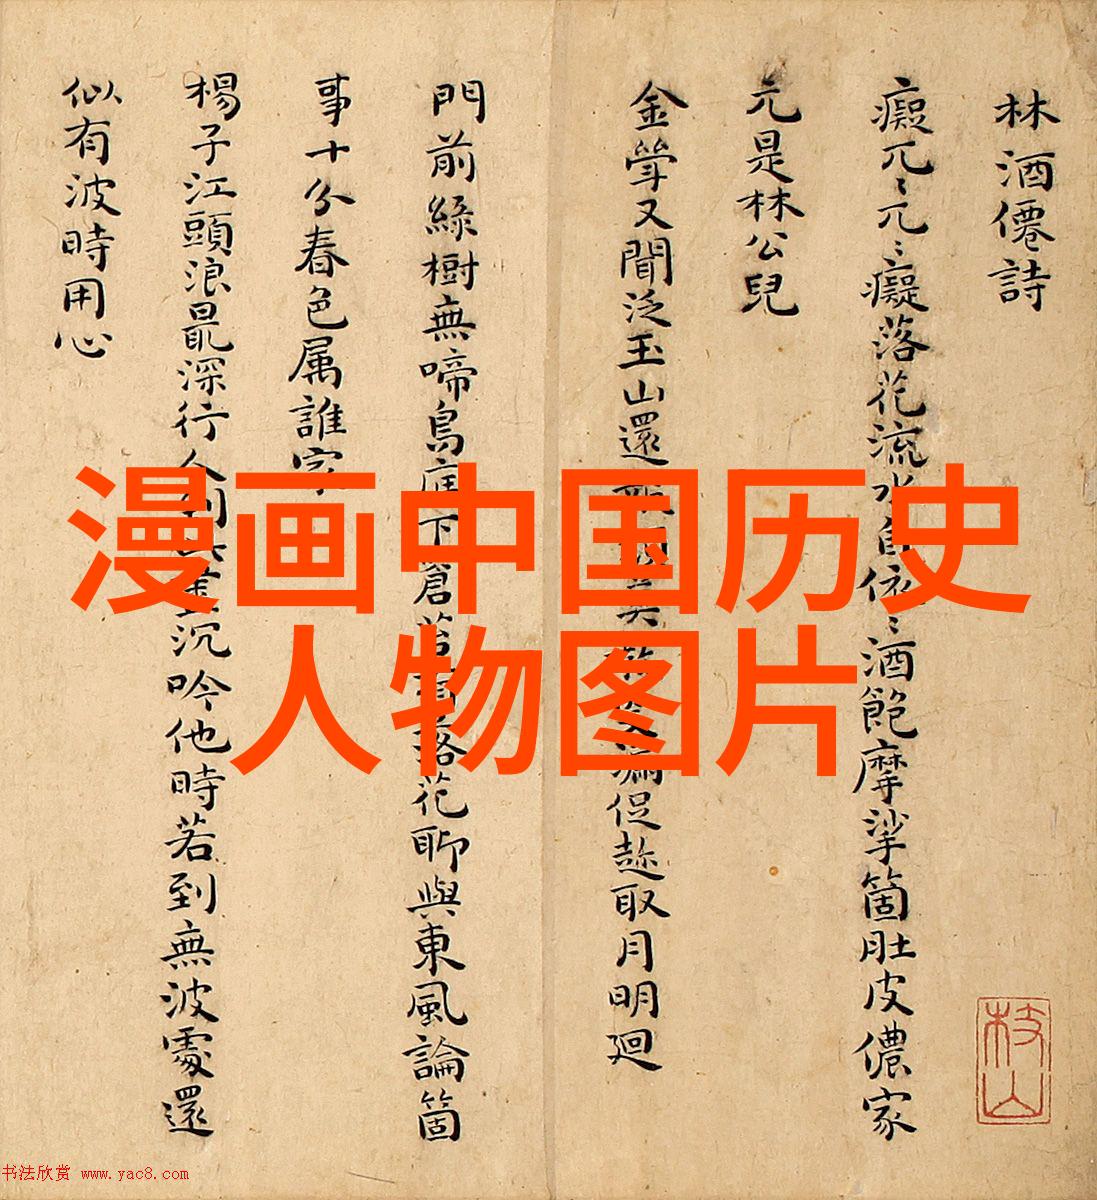 林酒僊詩
癡兀〻兀〻癡落花流水自依〻酒飽摩挲箇肚皮儂家
元是林公兒
金斝又聞泛玉山還促趂取月明廻
門前綠樹無啼鳥庭下蒼苔有落花聊與東風論箇
事十分春色属誰家
楊子江頭浪最深行人到沉吟他時若到無波處還
似有波時用心
枝山
漫画中国历史
人物图片
书法欣赏 www.yac8.com